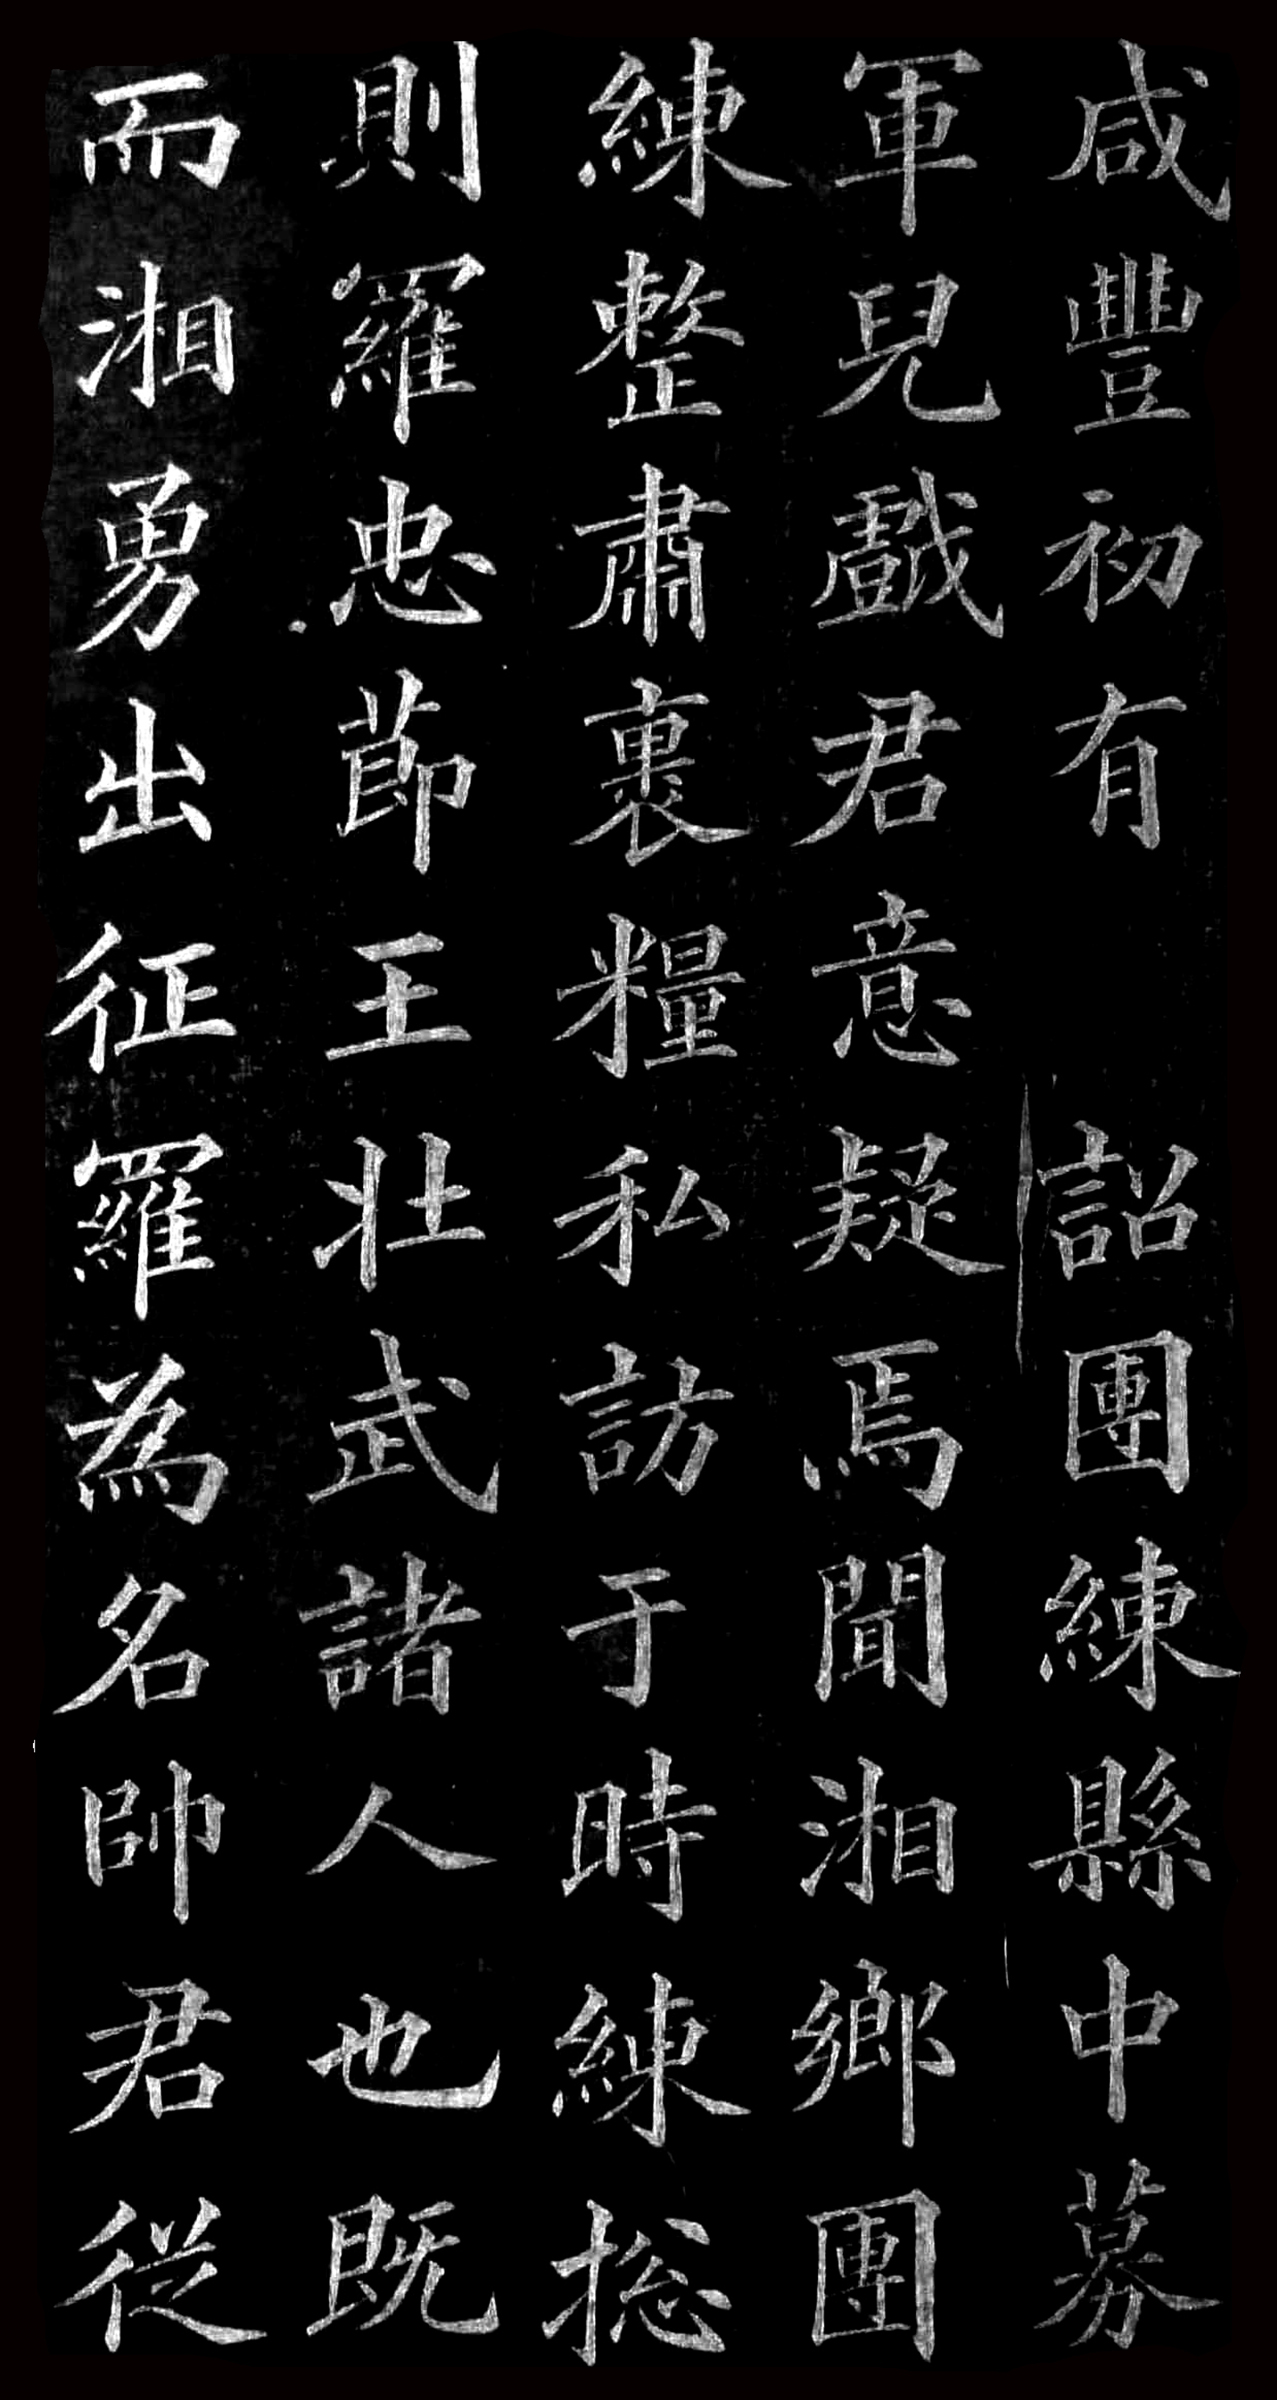 咸豐初有　　詔團練縣中募
軍兒戲君意疑焉聞湘鄉團
練整肅裹糧私訪于時練揔
則羅忠節王壯武諸人也既
而湘勇出征羅為名帥君從